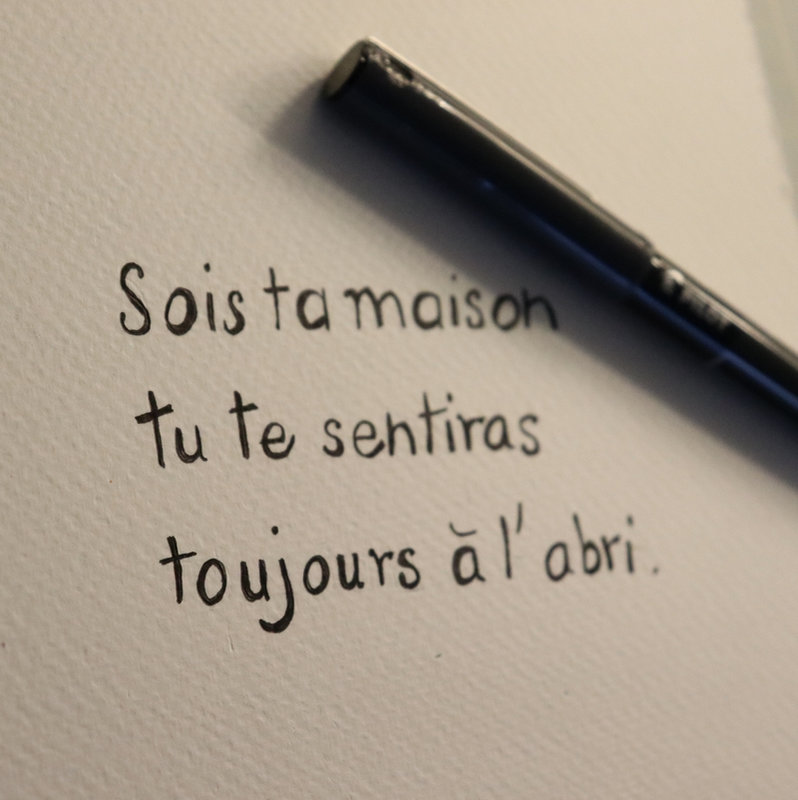 Sois ta maison
tu te sentiras
toujours à l'abri.
PILOT